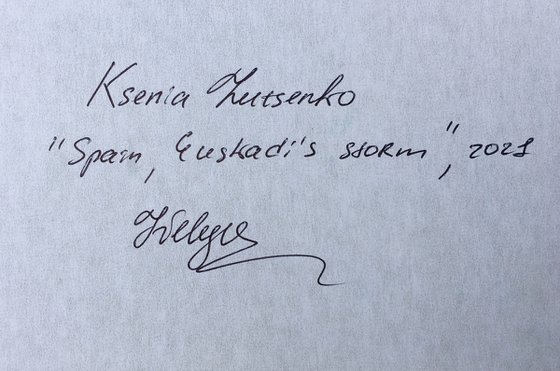 Ksenia Lutsenko
"Spain, Euskadi's storm", 2021